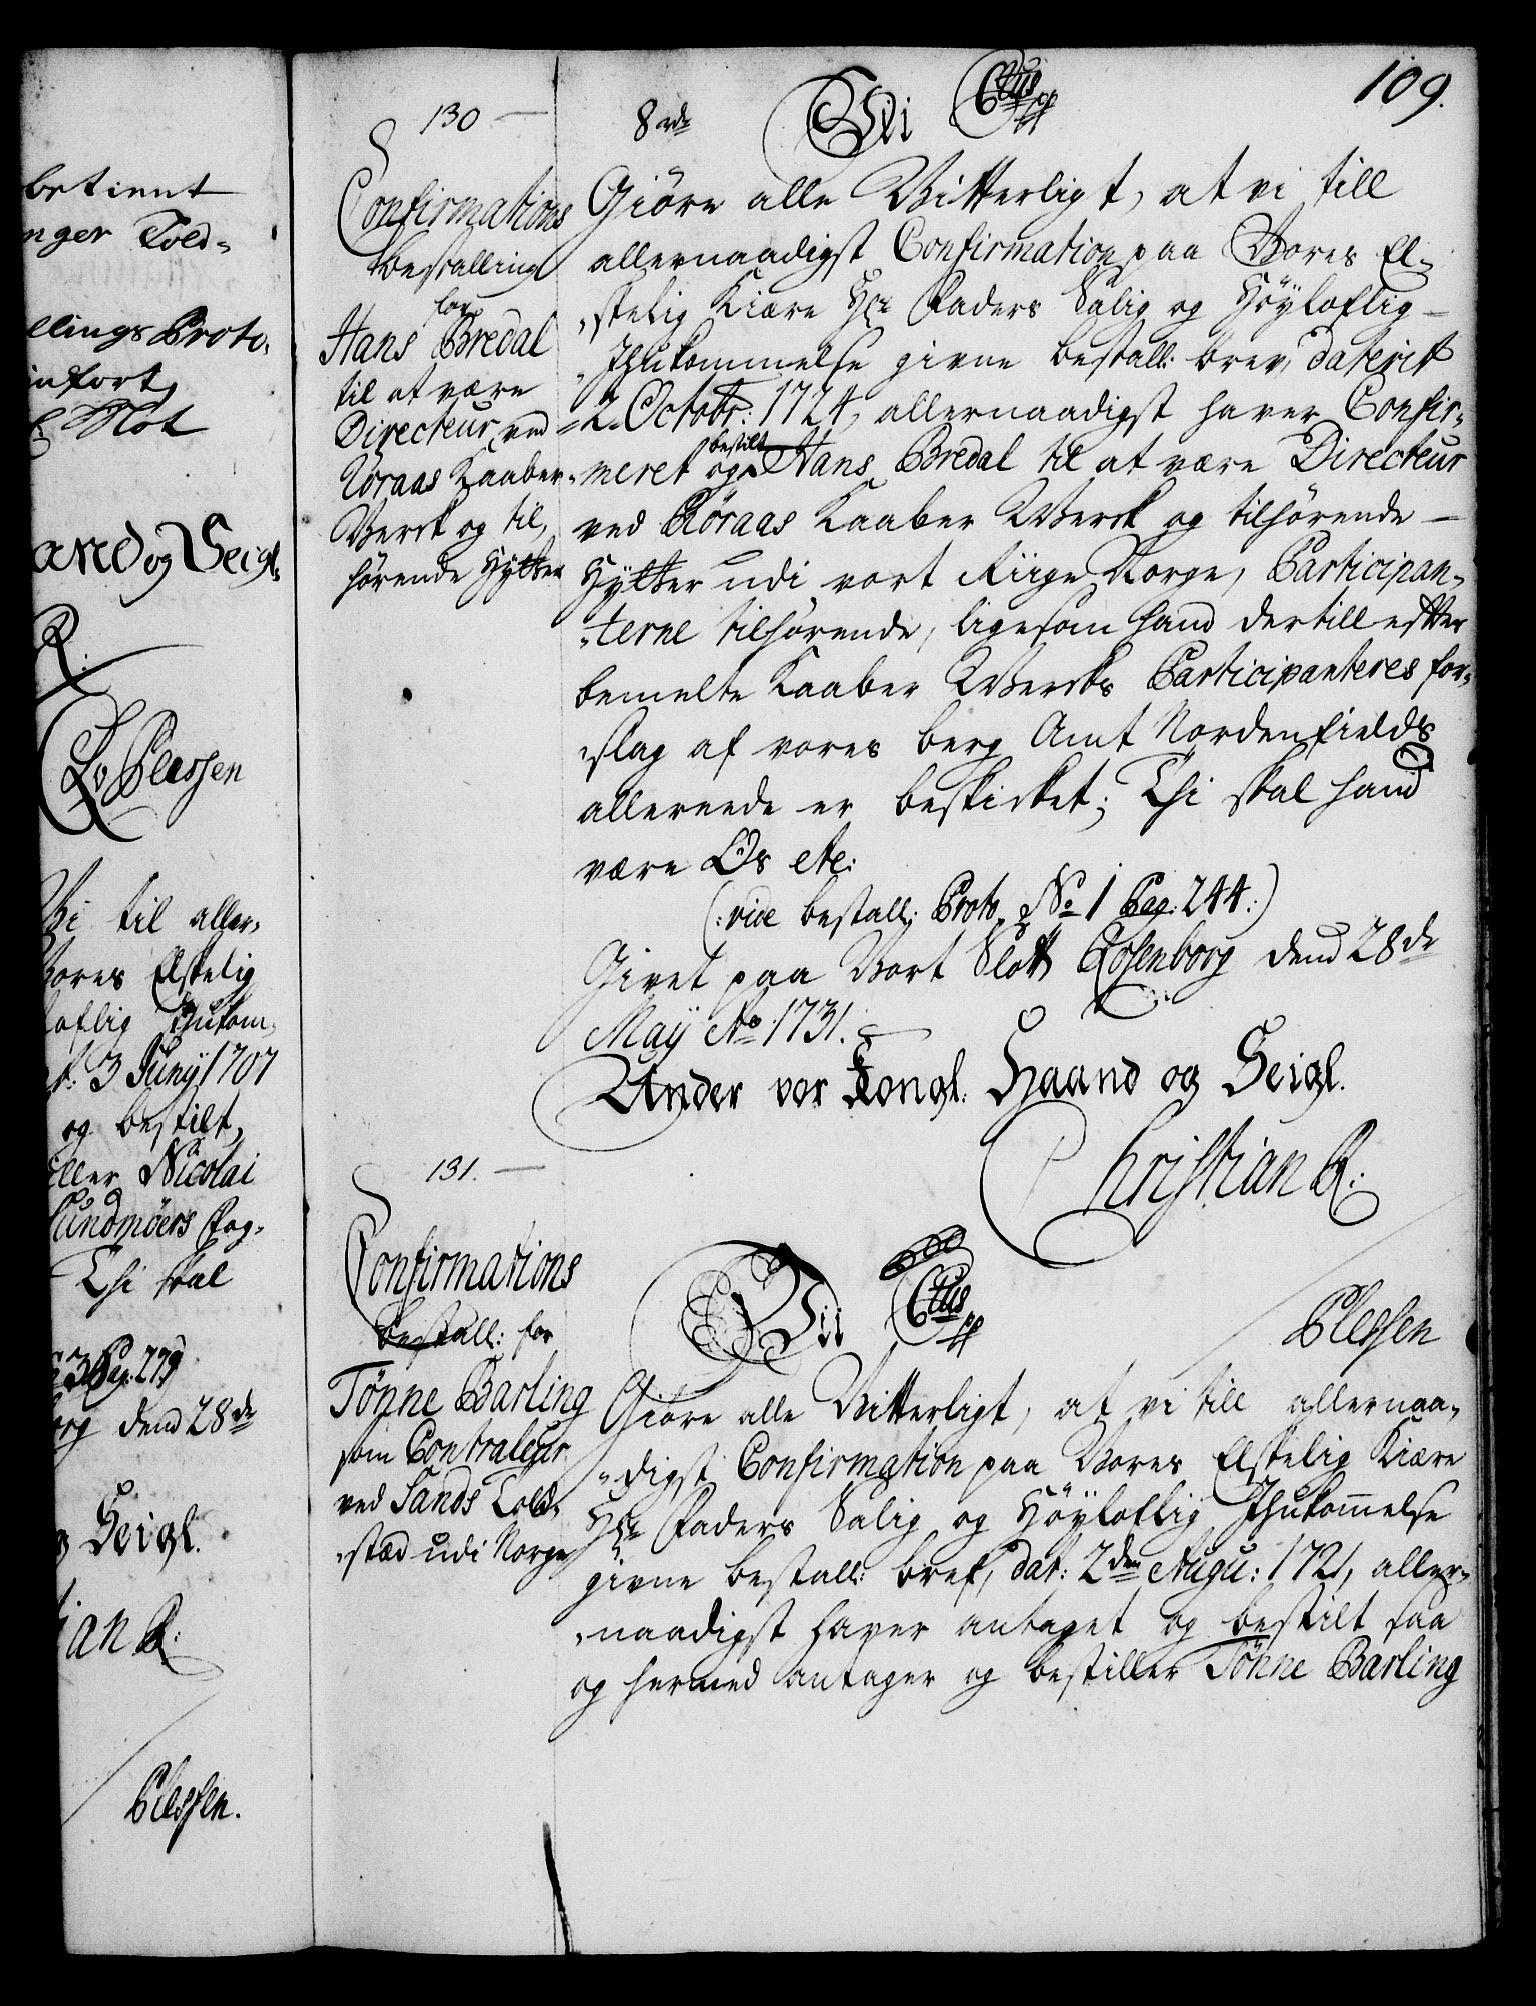 109.
betient
nger Told-
llings Proto,
indført,
Not
aand og Seigl.
R.
Plessen
Vi til aller-
Vores Elskelig
loflig Ihukom-
3 Junij 1707
og bestilt,
iller Nicolai
Sundmøers Fog-
Thi skal
Pag: 279
borg dend 28de
og Seigl.
ian R:
Plessen.
130
Confirmations
bestalling
for
Hans Bredal
til at være
Directeur ved
Røraas Kaaber
Verck og til,
hørende Hytter
8de Vii Ctus pp
Giöre alle Vitterligt, at vi till
allernaadigst Confirmation paa Vores El-
skelig Kiære Hr: Faders Salig og Höyloflig
Ihukommelse givne bestall: brev, daterit
2. Octobr: 1724, allernaadigst haver Confir-
meret og bestilt Hans Bredal til at være Directeur
ved Röraas Kaaber Werck og tilhörende
Hytter udi vort Riige Norge, Participan-
terne tilhörende, ligesom hand dertill effter
bemelte Kaaber Wercks Participanteres for-
slag af vores berg Amt Nordenfields
allerede er beskicket; Thi skal hand
være Os etc:
(: vide bestall: Proto. No 1 Pag: 244:)
Givet paa Vort Slott Rosenborg dend 28de
Maÿ Ao 1731.
Under vor Kongl: Haand og Seigl.
Christian R:
Plessen
131.
Confirmations
bestall: for
Tönne Barling
som Contraleur
ved Sands Told-
stæd udi Norge
Vii Ctus pp
Giöre alle Vitterligt, at vi till allernaa-
digst Confirmation paa Vores Elskelig Kiære
Hr: Faders Salig og Höyloflig Ihukom̄else
givne bestall: bref, dat: 2den Augu: 1721, aller-
naadigst haver antaget og bestilt saa
og hermed antager og bestiller Tönne Barling